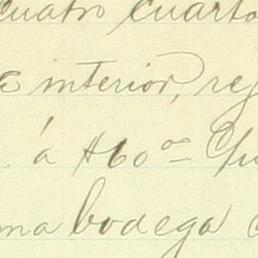 cuatro cuarto
e interior, rej
á $60.00 Qu
ma bodega